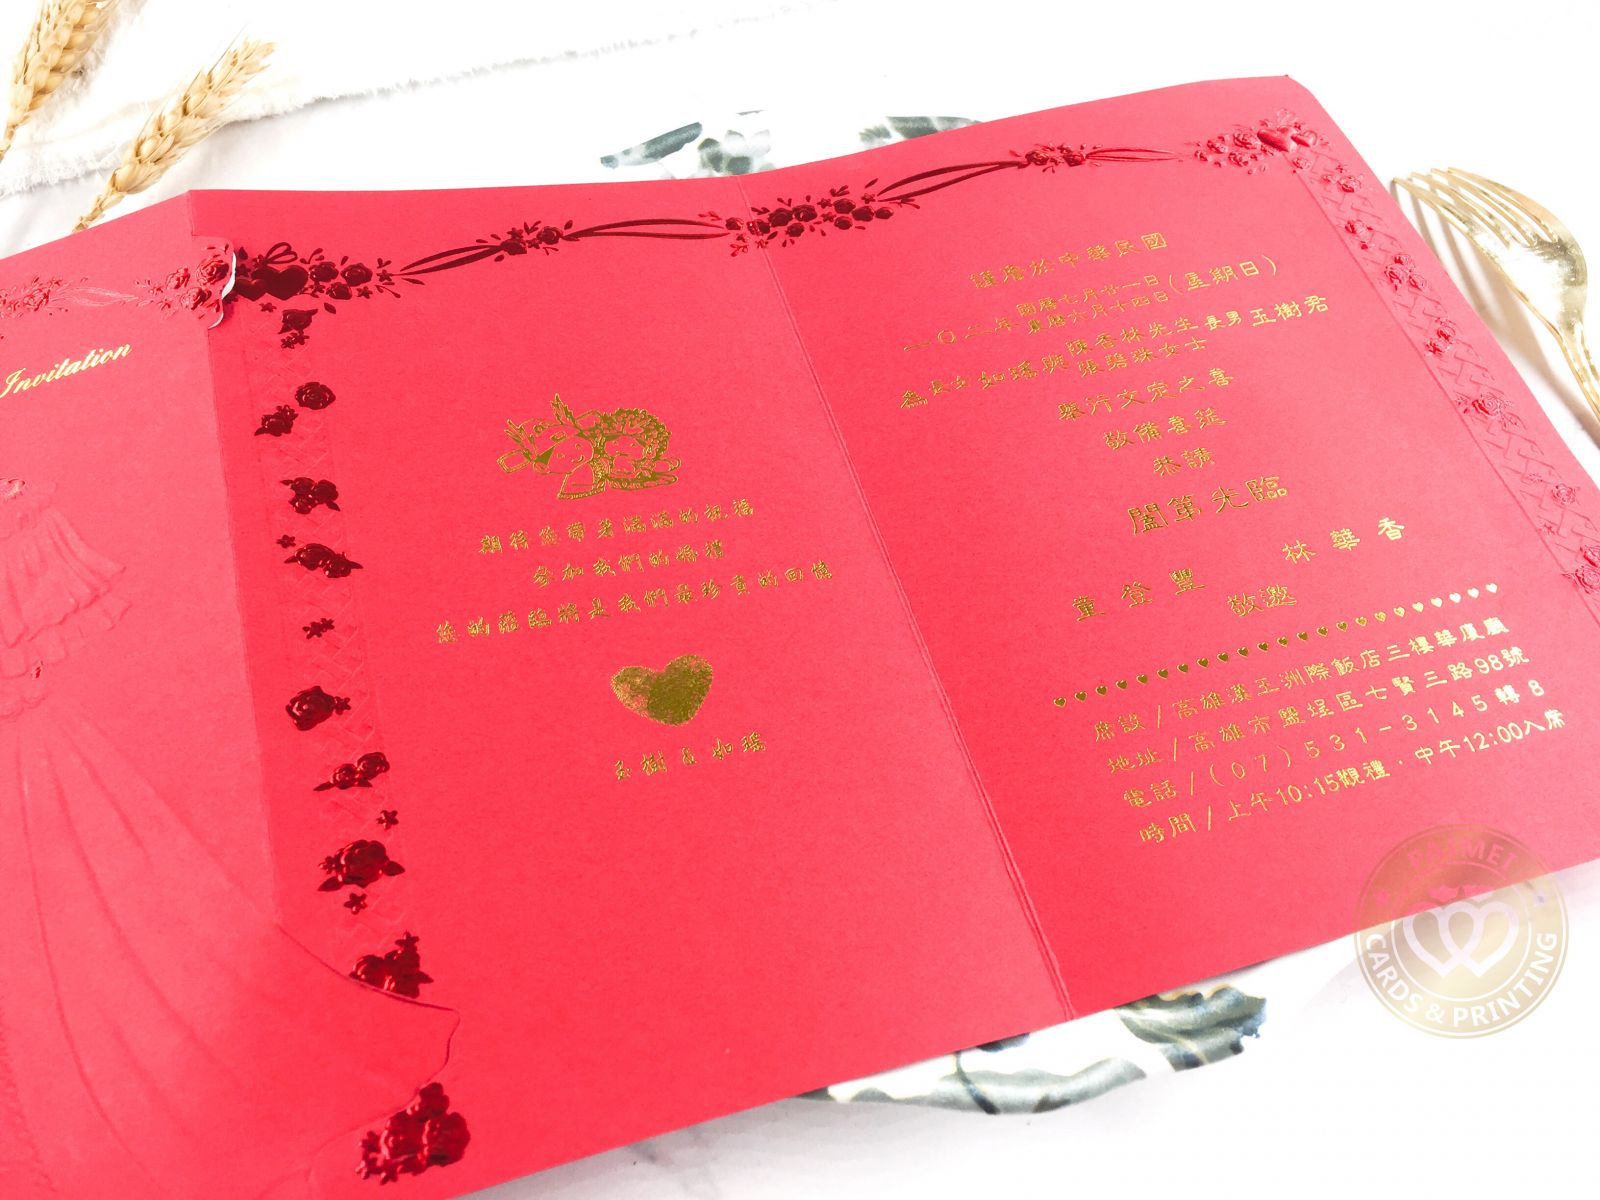 Invitation
期待您帶著滿滿的祝福
參加我們的婚禮
您的蒞臨將是我們最珍貴的回憶
玉樹 & 如瑤
謹詹於中華民國
一〇二年 國曆七月廿一日 農曆六月十四日 (星期日)
為長女 如瑤與 陳香林先生 張碧珠女士 長男 玉樹君
舉行文定之喜
敬備喜筵
恭請
闔第光臨
童登豐 林華香
敬邀
席設/高雄漢王洲際飯店三樓華廈廳
地址/高雄市鹽埕區七賢三路98號
電話/(07)531-3145轉8
時間/上午10:15觀禮·中午12:00入席
CARDS & PRINTING